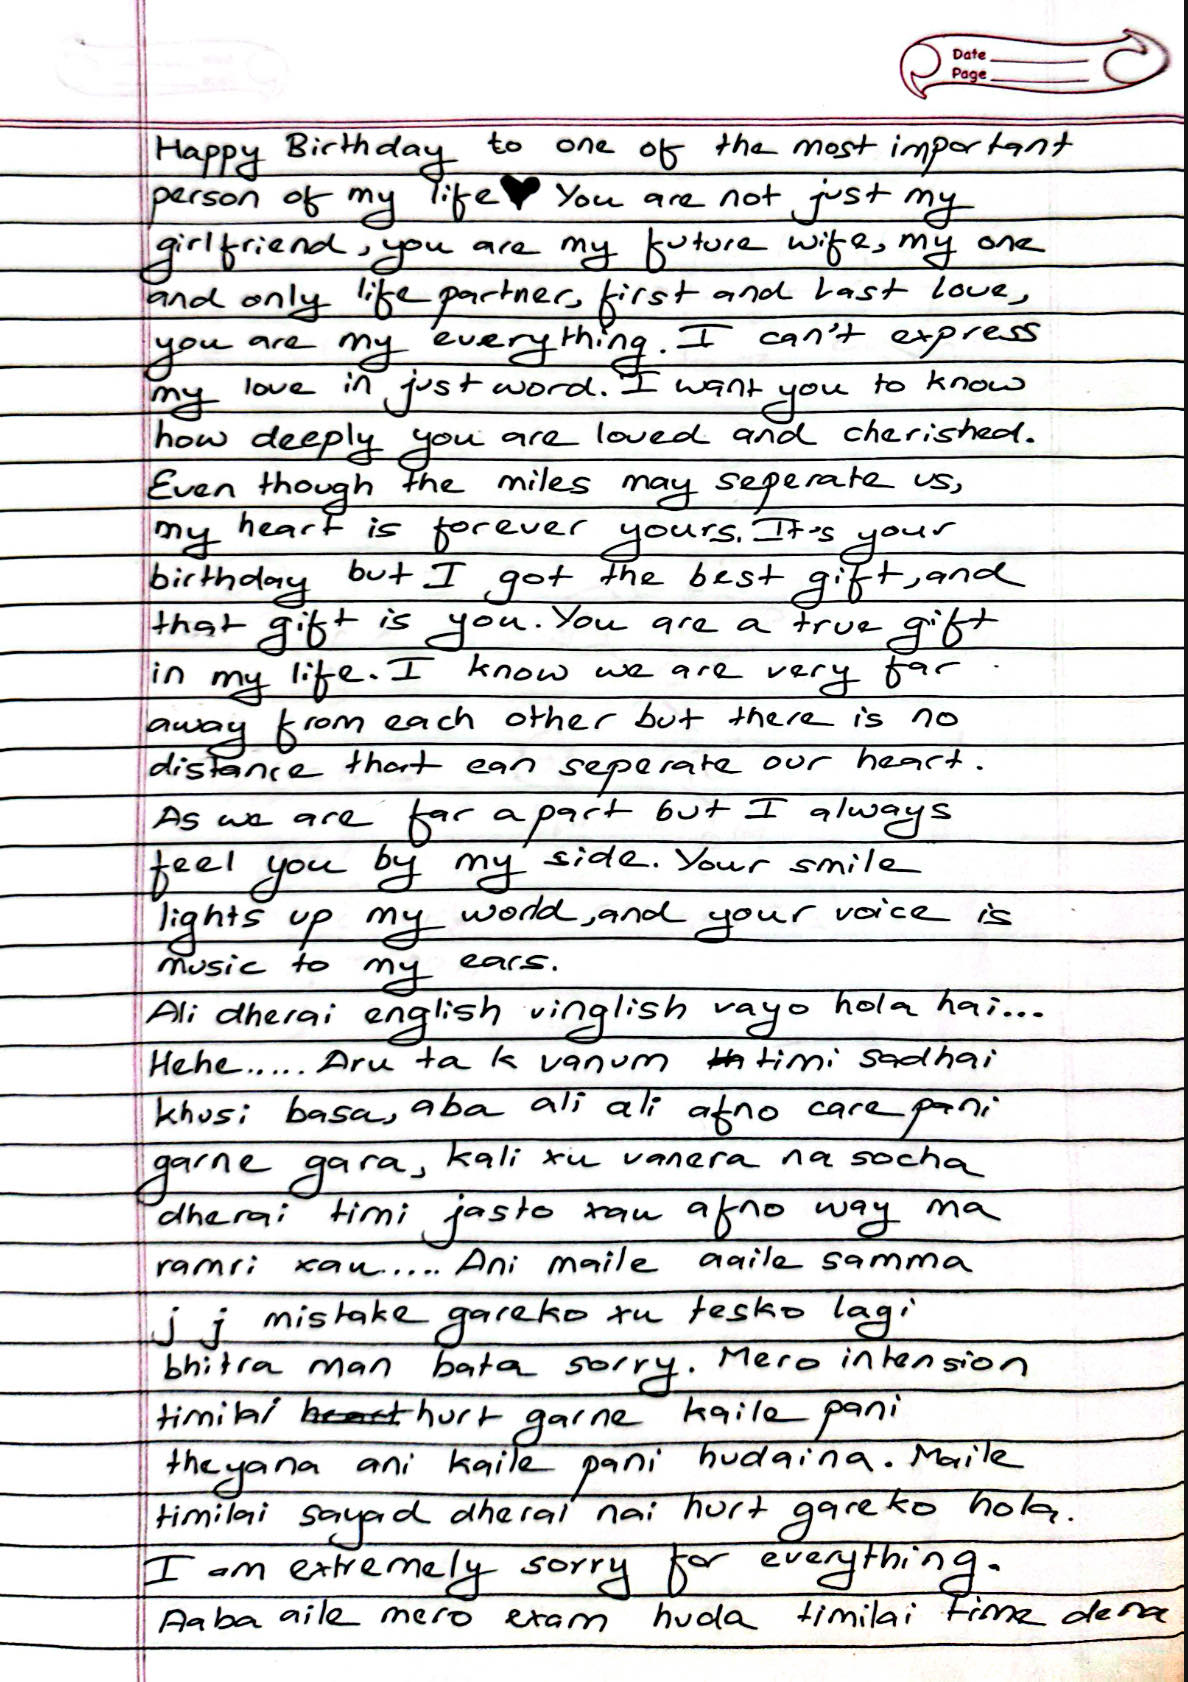 Date
Page
Happy Birthday to one of the most important
person of my life♥ You are not just my
girlfriend, you are my future wife, my one
and only life partner, first and last love,
you are my everything. I can't express
my love in just word. I want you to know
how deeply you are loved and cherished.
Even though the miles may seperate us,
my heart is forever yours. It's your
birthday but I got the best gift, and
that gift is you. You are a true gift
in my life. I know we are very far
away from each other but there is no
distance that can seperate our heart.
As we are far apart but I always
feel you by my side. Your smile
lights up my world, and your voice is
music to my ears.
Ali dherai english vinglish vayo hola hai...
Hehe..... Aru ta k vanum timi sadhai
khusi basa, aba ali ali afno care pani
garne gara, kali xu vanera na socha
dherai timi jasto xau afno way ma
ramri xau..... Ani maile aaile samma
j j mistake gareko xu tesko lagi
bhitra man bata sorry. Mero intension
timilai hurt garne kaile pani
theyana ani kaile pani hudaina. Maile
timilai sayad dherai nai hurt gareko hola.
I am extremely sorry for everything.
Aaba aile mero exam huda timilai time dena